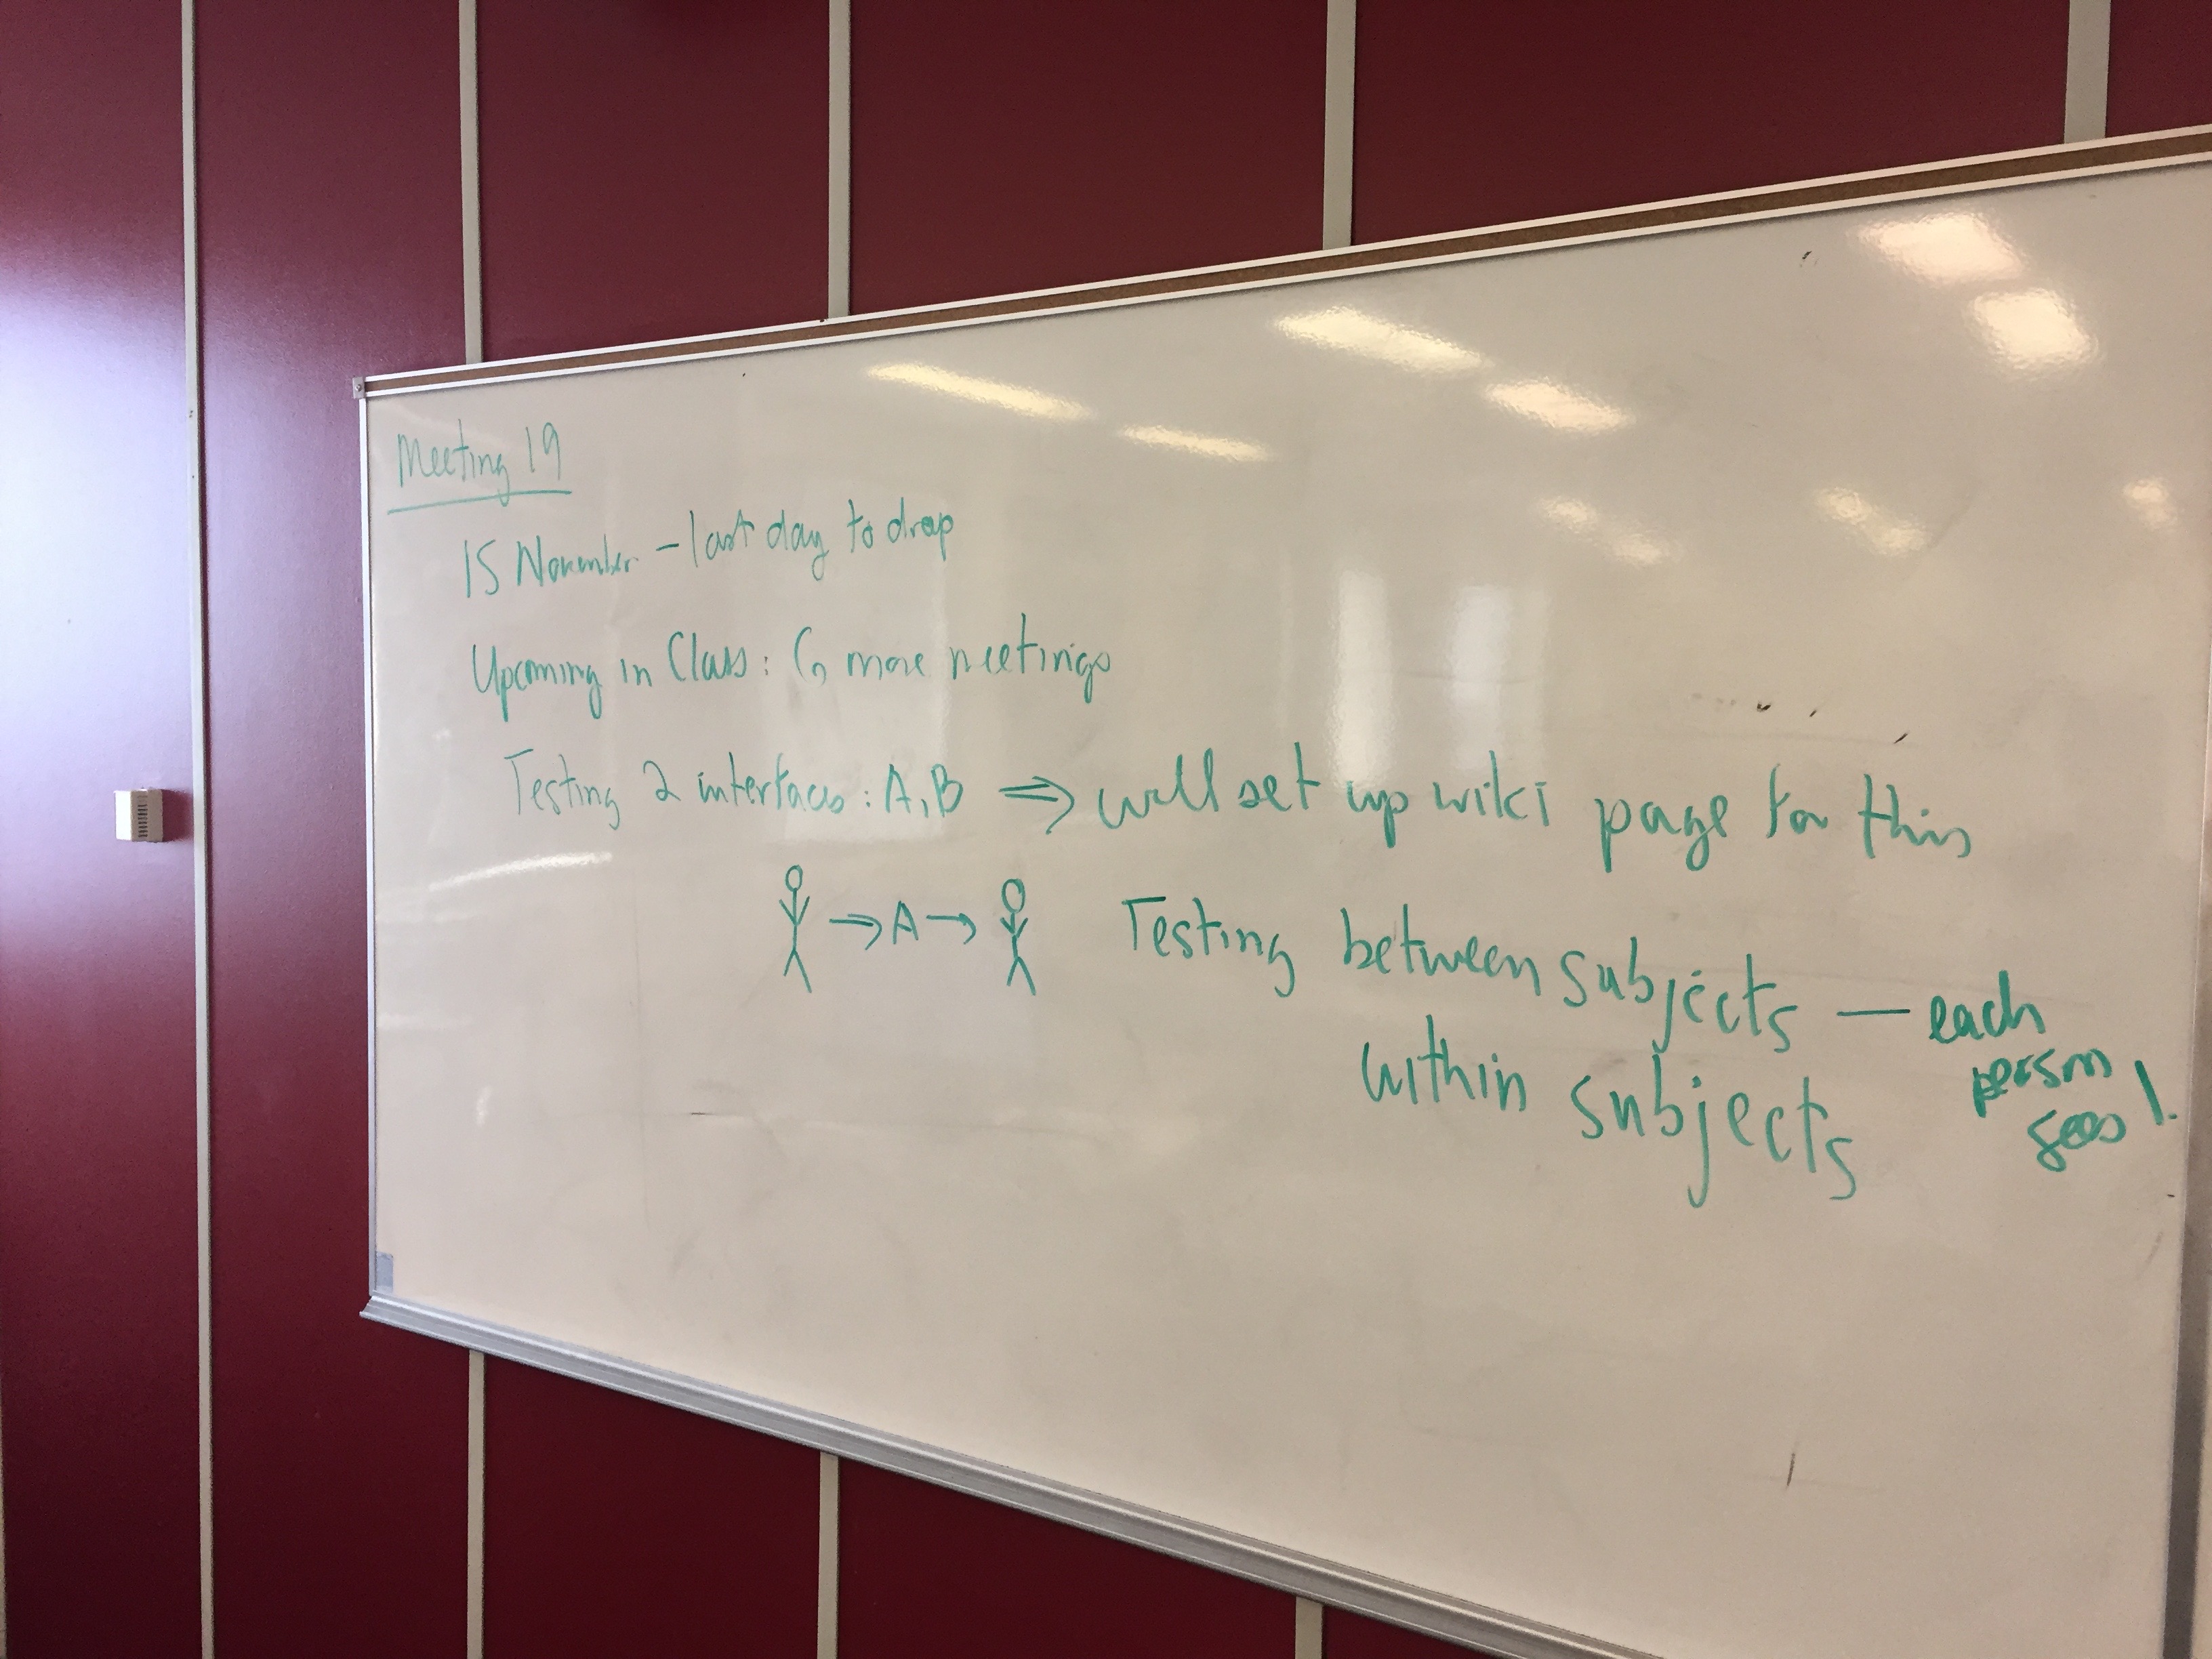 Meeting 19
15 November - last day to drop
Upcoming in Class: 6 more meetings
Testing 2 interfaces: A, B ⇒ will set up wiki page for this
→ A → Testing between subjects — each
person
sees 1.
within subjects